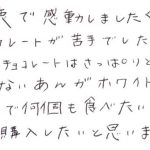 裏で感動しました
コレートが苦手でした
チョコレートはさっぱりと
ないあんがホワイト
で何個も食べたい
期購入したいと思いま